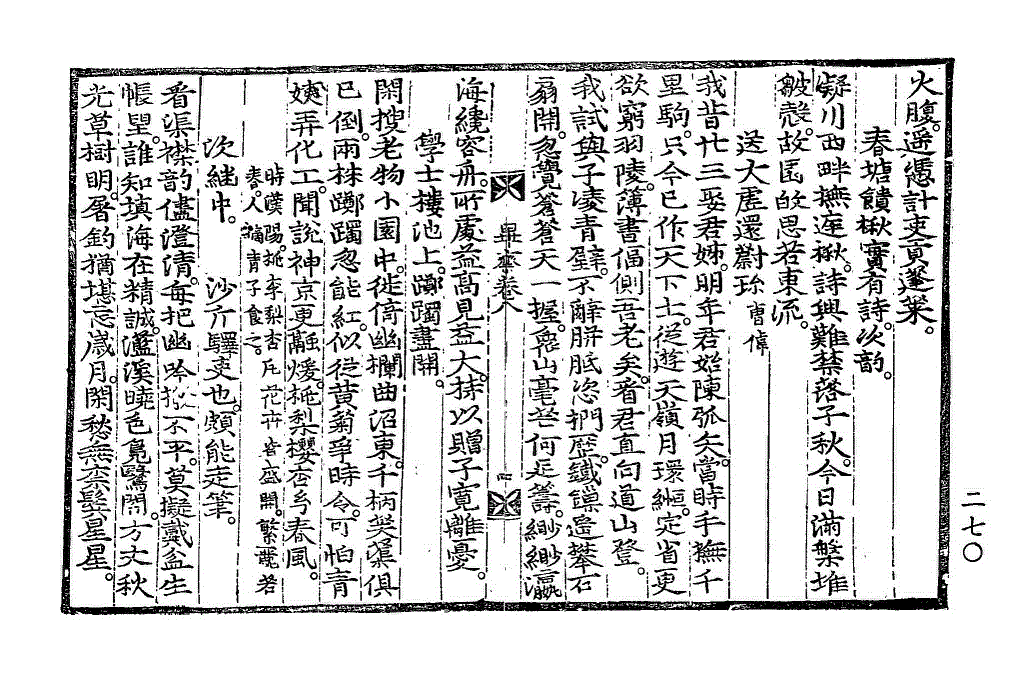 火腹。遥憑計吏貢蓬萊。
春塘饋楸實有詩。次韵。
凝川西畔撫遊楸。詩興難禁落子秋。今日滿盤堆
皺殼。故園的思若東流。
送大虛還蔚珍 曹偉
我昔廿三娶君姊。明年君始陳弧矢。當時手撫千
里駒。只今已作天下士。從遊天嶺月環緪。定省更
欲窮羽陵。薄書偪側吾老矣。看君直向道山登。
我試與子凌青壁。不辭胼胝恣捫歷。鐵鏁邊攀石
扇開。忽覺蒼蒼天一握。衆山毫芒何足籌。緲緲瀛
海纔容舟。所處益高見益大。持以贈子寬離憂。
學士樓池上。躑躅盡開。
閑搜老物小園中。徙倚幽欄曲沼東。千柄芙蕖俱
已倒。兩株躑躅忽能紅。似從黃菊爭時令。可怕青
姨弄化工。聞說神京更融煖。桃梨櫻杏兮春風。
時漢陽。桃李梨杏凡花卉皆盛開。繁麗若
春。人摘青子食之。
次繼中。 沙斤驛吏也。頗能走筆。
看渠襟韵儘澄清。每把幽吟撥不平。莫擬戴盆生
悵望。誰知填海在精誠。瀘溪曉色鳧鷖閙。方丈秋
光草樹明。屠釣猶堪忘歲月。閑愁無柰鬂星星。
畢齋卷八
二七〇